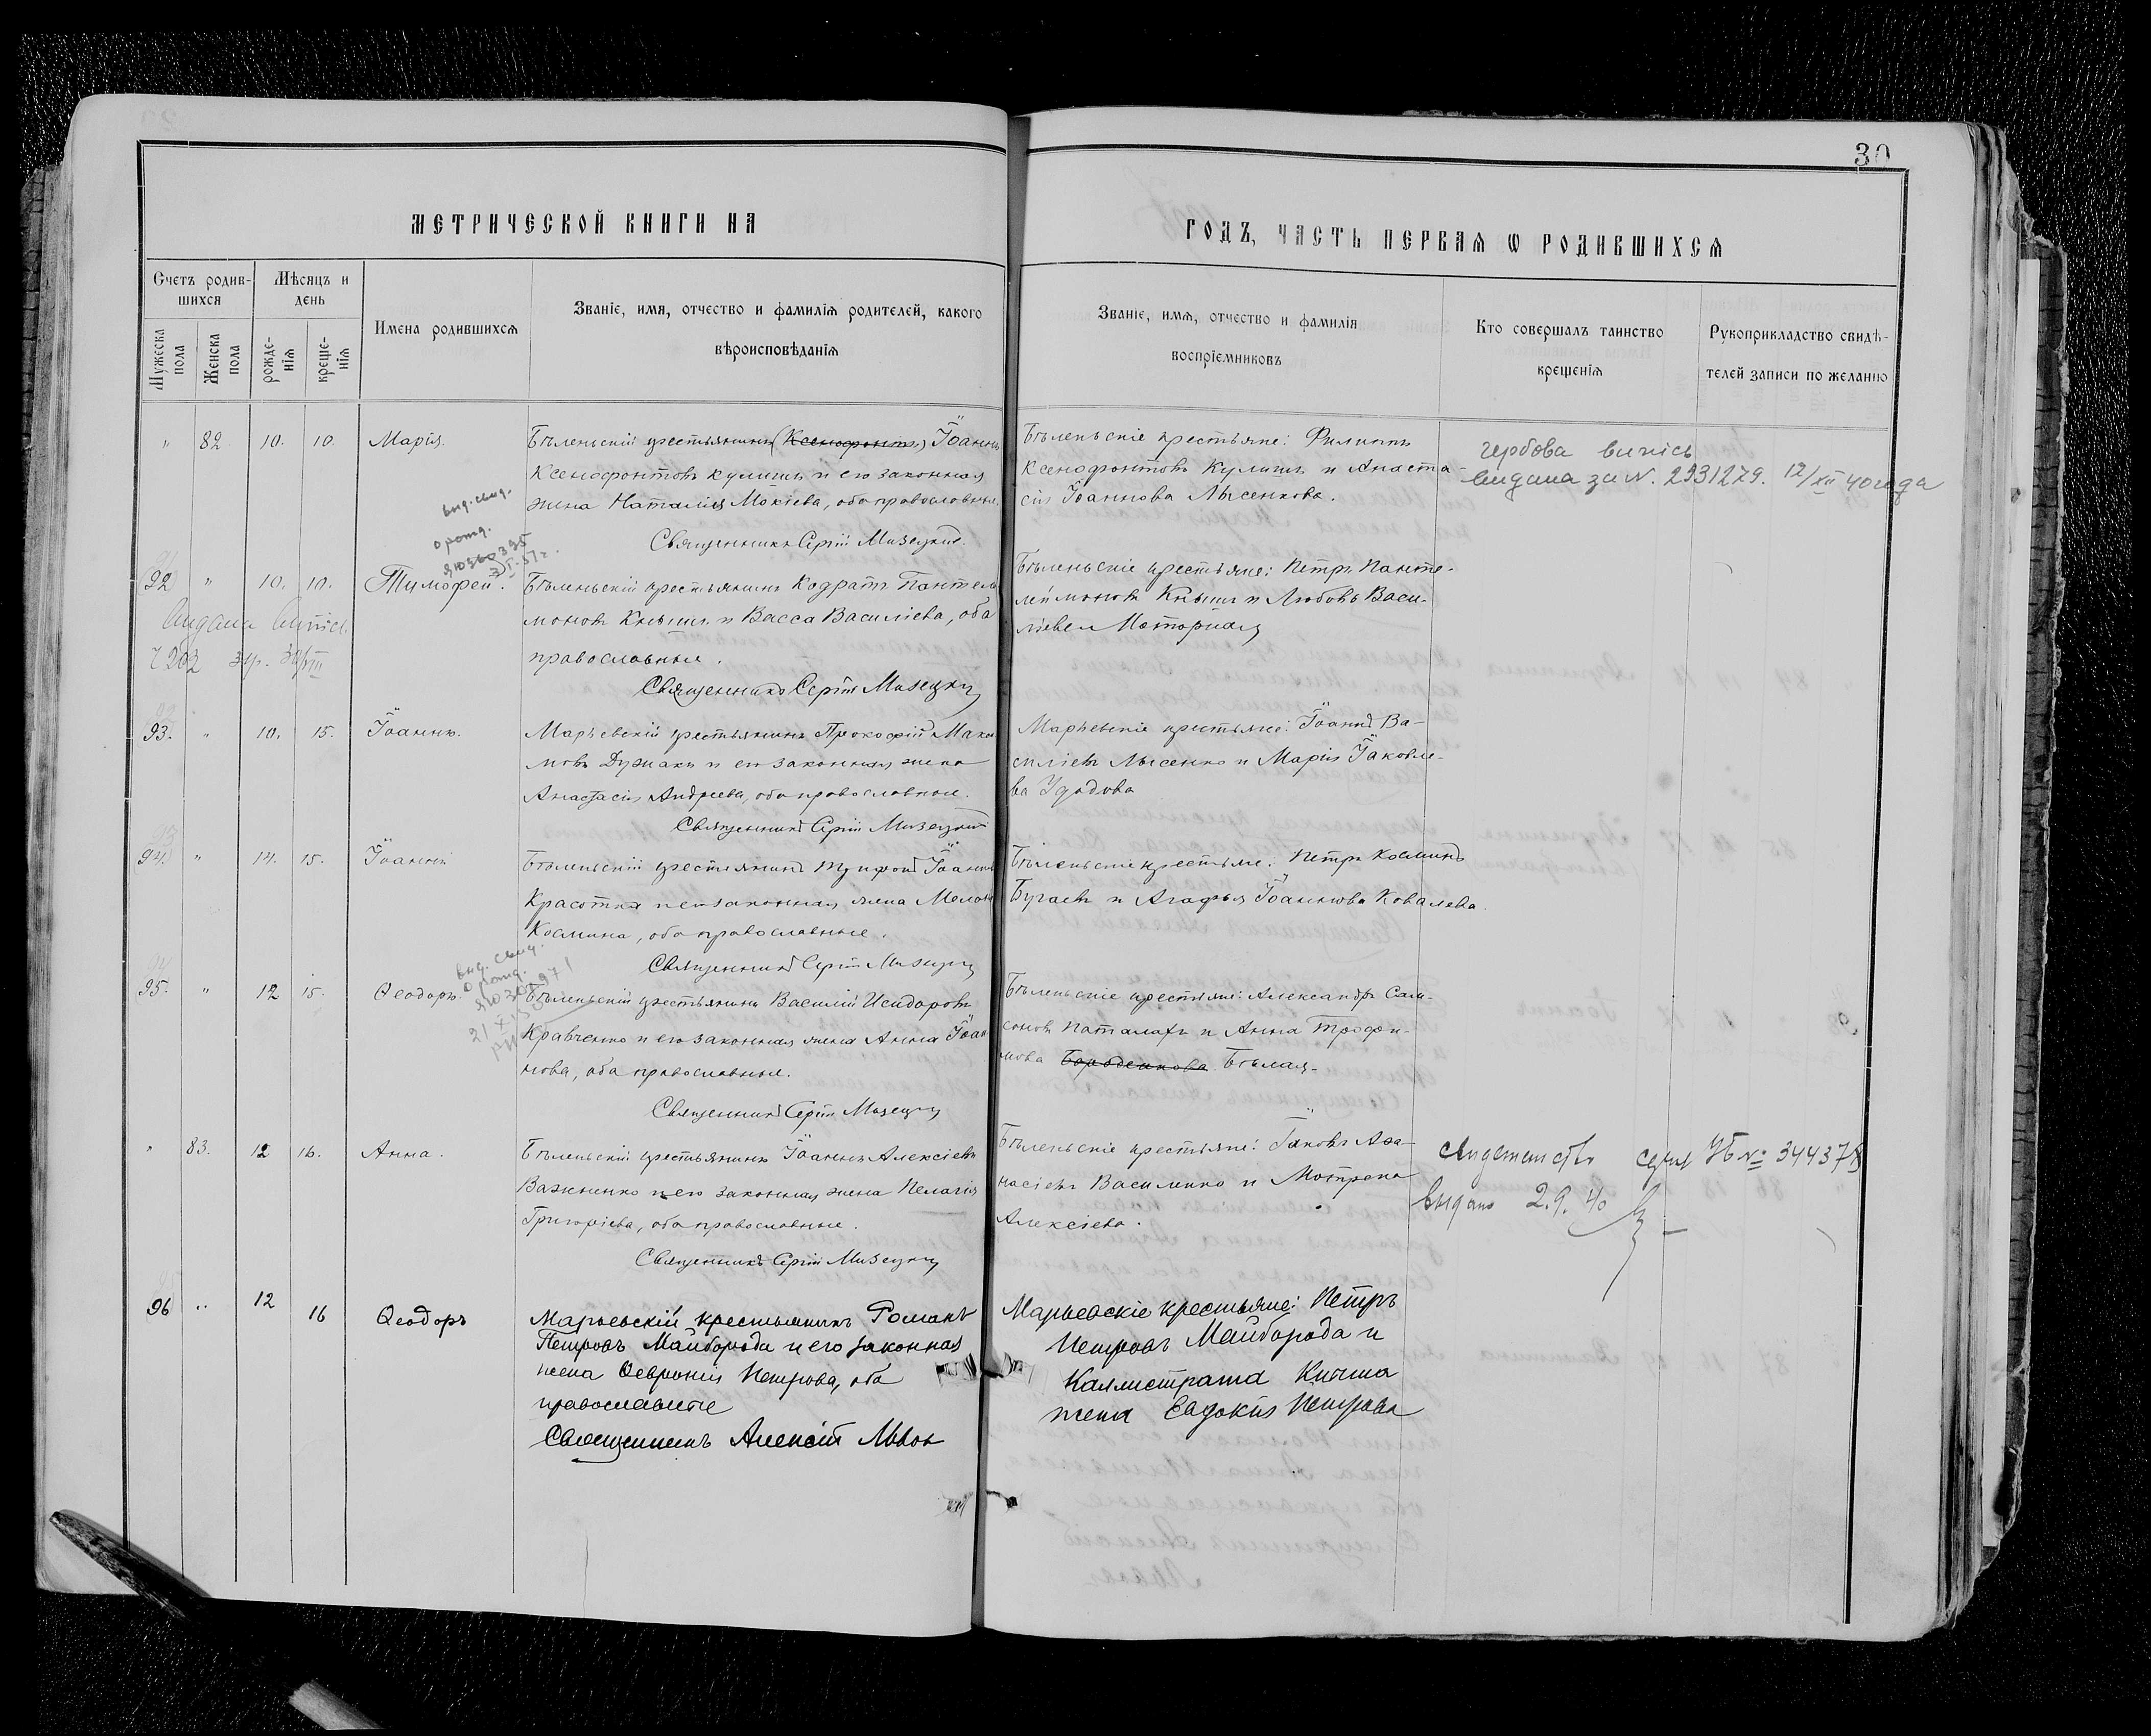 30
МЕТРИЧЕСКОЙ КНИГИ НА
ГОДЪ, ЧАСТЬ ПЕРВАЯ Ѡ РОДИВШИХСЯ
Счетъ родив-
шихся
Мѣсяцъ и
день
Мужеска
пола
Женска
пола
рожде-
нія
креще-
нія
Имена родившихся
Званіе, имя, отчество и фамилія родителей, какого
вѣроисповѣданія
Званіе, имя, отчество и фамилія
воспріемниковъ
Кто совершалъ таинство
крещенія
Рукоприкладство свидѣ-
телей записи по желанію
" 82 10. 10. Марія.
Бѣленьскій крестьянинъ (Ксенофонтъ) Іоаннъ
Ксенофонтовъ Кулишъ и его законная
жена Наталія Мокіева, оба православные.
Священникъ Сергій Мизецкій.
Бѣленьскіе крестьяне: Филиппъ
Ксенофонтовъ Кулишъ и Анаста-
сія Іоаннова Лысенкова.
гербова випісь
видана за N. 2931279. 12/XII 40 года
выд. свид.
о рожд.
92 " 10. 10. Тимофей.
Видана випісь
Бѣленьскій крестьянинъ Кодратъ Пантелей
моновъ Кнышъ и Васса Василіева, оба
православные.
Священникъ Сергій Мизецкій
Бѣленьскіе крестьяне: Петръ Панте-
леймоновъ Кнышъ и Любовь Васи-
ліевая Моторная
93. " 10. 15. Іоаннъ.
Марьевскій крестьянинъ Прокофій Макси
мовъ Дужакъ и его законная жена
Анастасія Андреева, оба православные.
Священникъ Сергій Мизецкій
Марьевскіе крестьяне: Іоаннъ Ва-
силіевъ Лысенко и Марія Іаковле-
ва Удодова
94. " 14. 15. Іоаннъ
Бѣленьскій крестьянинъ Трифонъ Іоанновъ
Красотка и его законная жена Мелан
Космина, оба православные.
Священникъ Сергій Мизецкій
Бѣленьскіе крестьяне: Петръ Косминъ
Бугаевъ и Агафья Іоаннова Ковалева.
выд. свид.
о рожд.
95. " 12 15. Ѳеодоръ.
Бѣленьскій крестьянинъ Василій Исидоровъ
Кравченко и его законная жена Анна Іоан
нова, оба православные.
Священникъ Сергій Мизецкій
Бѣленьскіе крестьяне: Александръ Сам-
соновъ Паталахъ и Анна Трофи-
мова Бороденкова Бѣлая.
" 83. 12 16. Анна.
Бѣленьскій крестьянинъ Іоаннъ Алексіевъ
Важненко и его законная жена Пелагія
Григоріева, оба православные.
Священникъ Сергій Мизецкій
Бѣленьскіе крестьяне: Іаковъ Аѳа-
насіевъ Василенко и Мотрона
Алексіева.
Свидетельство серия УБ № 344378
выдано 2.9.40
96 " 12 16 Ѳеодоръ
Марьевскій крестьянинъ Романъ
Петровъ Майборода и его законная
жена Ѳевронія Петрова, оба
православные
Священникъ Алексій Львов
Марьевскіе крестьяне: Петръ
Петровъ Майборода и
Каллистрата Кичма
жена Евдокія Петрова